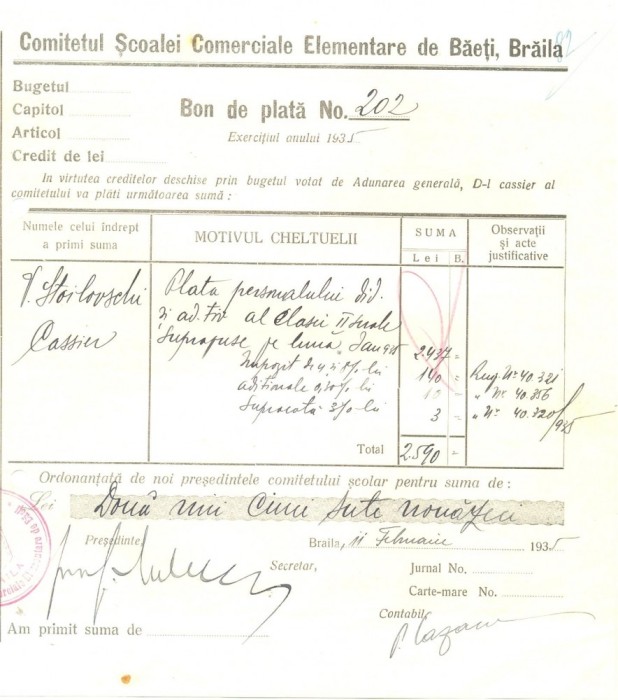 Comitetul Școalei Comerciale Elementare de Băeți, Brăila
Bugetul
Capitol
Bon de plată No. 202
Articol
Exercițiul anului 1935
Credit de lei
In virtutea creditelor deschise prin bugetul votat de Adunarea generală, D-l cassier al
comitetului va plăti următoarea sumă :
Numele celui îndrept
a primi suma
MOTIVUL CHELTUELII
SUMA
Lei B.
Observații
și acte
justificative
Stoilovschi
Cassier
Plata personalului did.
al Clasei II
pe luna Ian 935
2.437 =
140 =
Rug. No 40.321
adiționale
" No 40.856
3 =
" No 40.320/935
Total 2.590 =
Ordonanțată de noi președintele comitetului școlar pentru suma de :
Lei Două mii Cinci sute nouăzeci
Președinte,
Braila, 11 Februarie 1935
Secretar,
Jurnal No.
Carte-mare No.
Contabil,
Am primit suma de